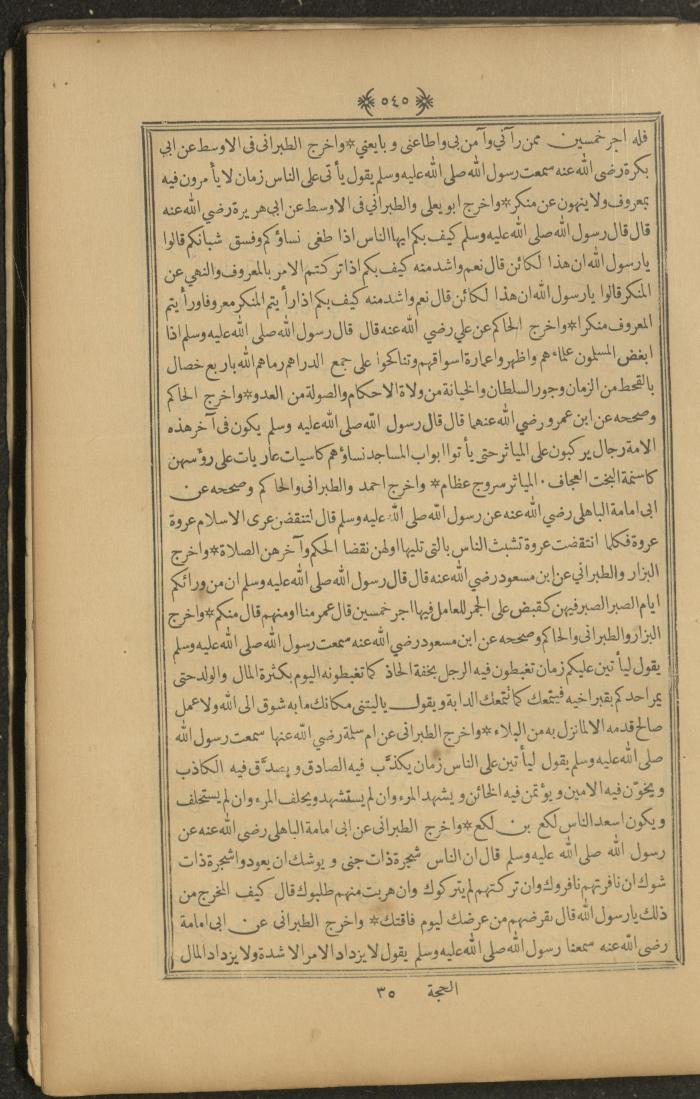 ﴿ ٥٤٥ ﴾
فله اجر خمسين ممن رآني وآمن بى واطاعنى وبايعني * واخرج الطبرانى فى الاوسط عن ابي
بكرة رضى الله عنه سمعت رسول الله صلى الله عليه وسلم يقول يأتى على الناس زمان لا يأمرون فيه
بمعروف ولا ينهون عن منكر * واخرج ابو يعلى والطبراني فى الاوسط عن ابى هريرة رضي الله عنه
قال قال رسول الله صلى الله عليه وسلم كيف بكم ايها الناس اذا طغى نساؤكم وفسق شبانكم قالوا
يا رسول الله ان هذا لكائن قال نعم واشد منه كيف بكم اذا تركتم الامر بالمعروف والنهي عن
المنكر قالوا يا رسول الله ان هذا لكائن قال نعم واشد منه كيف بكم اذا رأيتم المنكر معروفا ورأيتم
المعروف منكرا * واخرج الحاكم عن علي رضي الله عنه قال قال رسول الله صلى الله عليه وسلم اذا
ابغض المسلمون علماءهم واظهروا عمارة اسواقهم وتناكحوا على جمع الدراهم رماهم الله باربع خصال
بالقحط من الزمان وجور السلطان والخيانة من ولاة الاحكام والصولة من العدو * واخرج الحاكم
وصححه عن ابن عمرو رضي الله عنهما قال قال رسول الله صلى الله عليه وسلم يكون فى آخر هذه
الامة رجال يركبون على المياثر حتى يأتوا ابواب المساجد نساؤهم كاسيات عاريات على رؤسهن
كاسنمة البخت العجاف . المياثر سروج عظام * واخرج احمد والطبرانى والحاكم وصححه عن
ابى امامة الباهلى رضي الله عنه عن رسول الله صلى الله عليه وسلم قال لتنقضن عرى الاسلام عروة
عروة فكلما انتقضت عروة تشبث الناس بالتى تليها اولهن نقضا الحكم وآخرهن الصلاة * واخرج
البزار والطبراني عن ابن مسعود رضي الله عنه قال قال رسول الله صلى الله عليه وسلم ان من ورائكم
ايام الصبر الصبر فيهن كقبض على الجمر للعامل فيها اجر خمسين قال عمر منا او منهم قال منكم * واخرج
البزار والطبرانى والحاكم وصححه عن ابن مسعود رضي الله عنه سمعت رسول الله صلى الله عليه وسلم
يقول ليأتين عليكم زمان تغبطون فيه الرجل بخفة الحاذ كما تغبطونه اليوم بكثرة المال والولد حتى
يمر احدكم بقبر اخيه فيتمعك كما تتمعك الدابة ويقول ياليتنى مكانك ما به شوق الى الله ولا عمل
صالح قدمه الا لما نزل به من البلاء * واخرج الطبرانى عن ام سلمة رضي الله عنها سمعت رسول الله
صلى الله عليه وسلم يقول ليأتين على الناس زمان يكذَّب فيه الصادق و يصدَّق فيه الكاذب
و يخوّن فيه الامين و يؤتمن فيه الخائن و يشهد المرء وان لم يستشهد و يحلف المرء وان لم يستحلف
و يكون اسعد الناس لكع بن لكع * واخرج الطبرانى عن ابى امامة الباهلى رضي الله عنه عن
رسول الله صلى الله عليه وسلم قال ان الناس شجرة ذات جنى و يوشك ان يعودوا شجرة ذات
شوك ان نافرتهم نافروك وان تركتهم لم يتركوك وان هربت منهم طلبوك قال كيف المخرج من
ذلك يا رسول الله قال نقرضهم من عرضك ليوم فاقتك * واخرج الطبرانى عن ابى امامة
رضى الله عنه سمعنا رسول الله صلى الله عليه وسلم يقول لا يزداد الامر الا شدة ولا يزداد المال
الحجة ٣٥